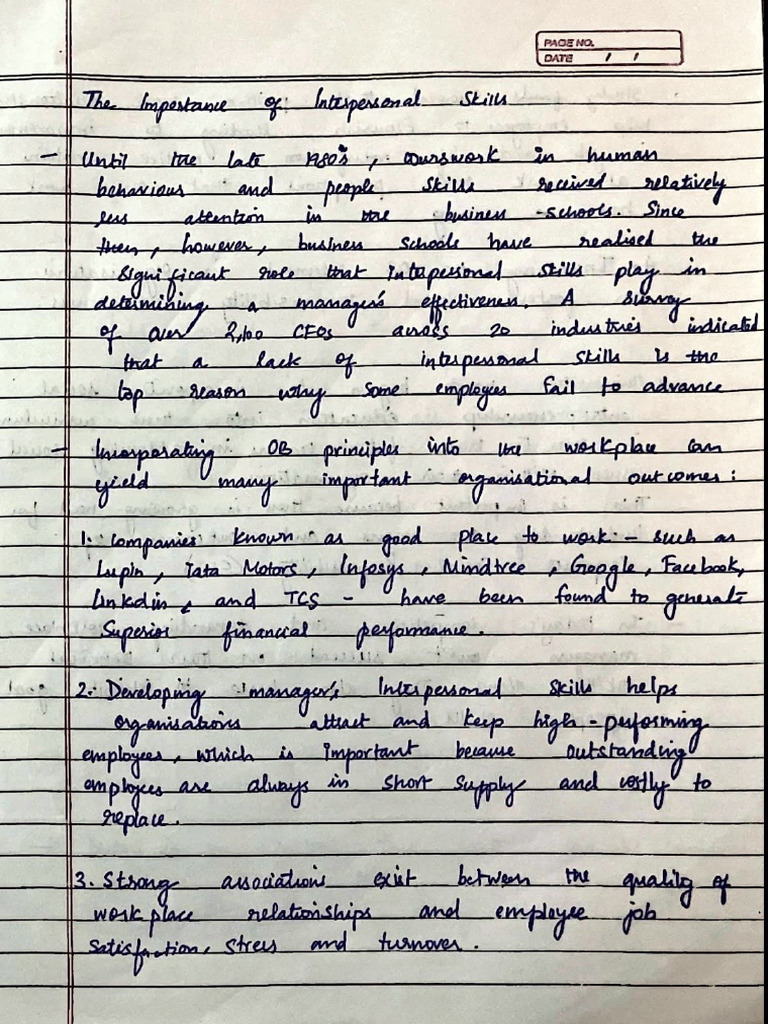 PAGE NO.
DATE / /
The Importance of Interpersonal Skills
- Until the late 1980's, courswork in human
behavious and people skills received relatively
less attention in the business -schools. Since
then, however, business schools have realised the
significant role that Intapersonal skills play in
determining a manager's effectiveness. A survey
of over 2,100 CFOs across 20 industries indicated
that a lack of interpersonal skills is the
top reason why some employees fail to advance
- Incorporating OB principles into the workplace can
yield many important organisational outcomes:
1. Companies known as good place to work - such as
Lupin, Tata Motors, Infosys, Mindtree, Google, Facebook,
linkdin, and TCS - have been found to generate
Superior financial performance.
2. Developing manager's Interpersonal skills helps
organisations attract and keep high-performing
employees, which is important because outstanding
employees are always in short supply and costly to
replace.
3. Strong associations exist between the quality of
workplace relationships and employee job
satisfaction, stress and turnover.